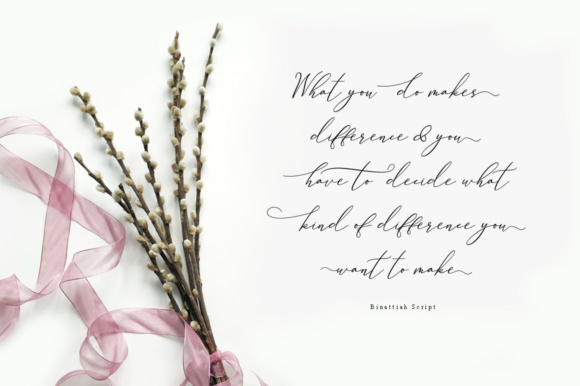 What you do makes
difference & you
have to decide what
kind of difference you
want to make
Binattiah Script